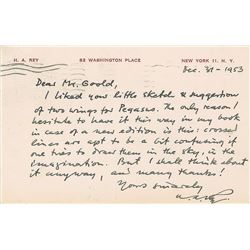 H. A. REY 82 WASHINGTON PLACE NEW YORK 11. N. Y.
Dec. 31 - 1953
Dear Mr. Goold,
I liked your little sketch & suggestion
of two wings for Pegasus. The only reason I
hesitate to have it this way in my book
in case of a new edition is this: crossed
lines are apt to be a bit confusing if
one tries to draw them in the sky, in the
imagination. But I shall think about
it anyway, and many thanks!
Yours sincerely
H. A. Rey